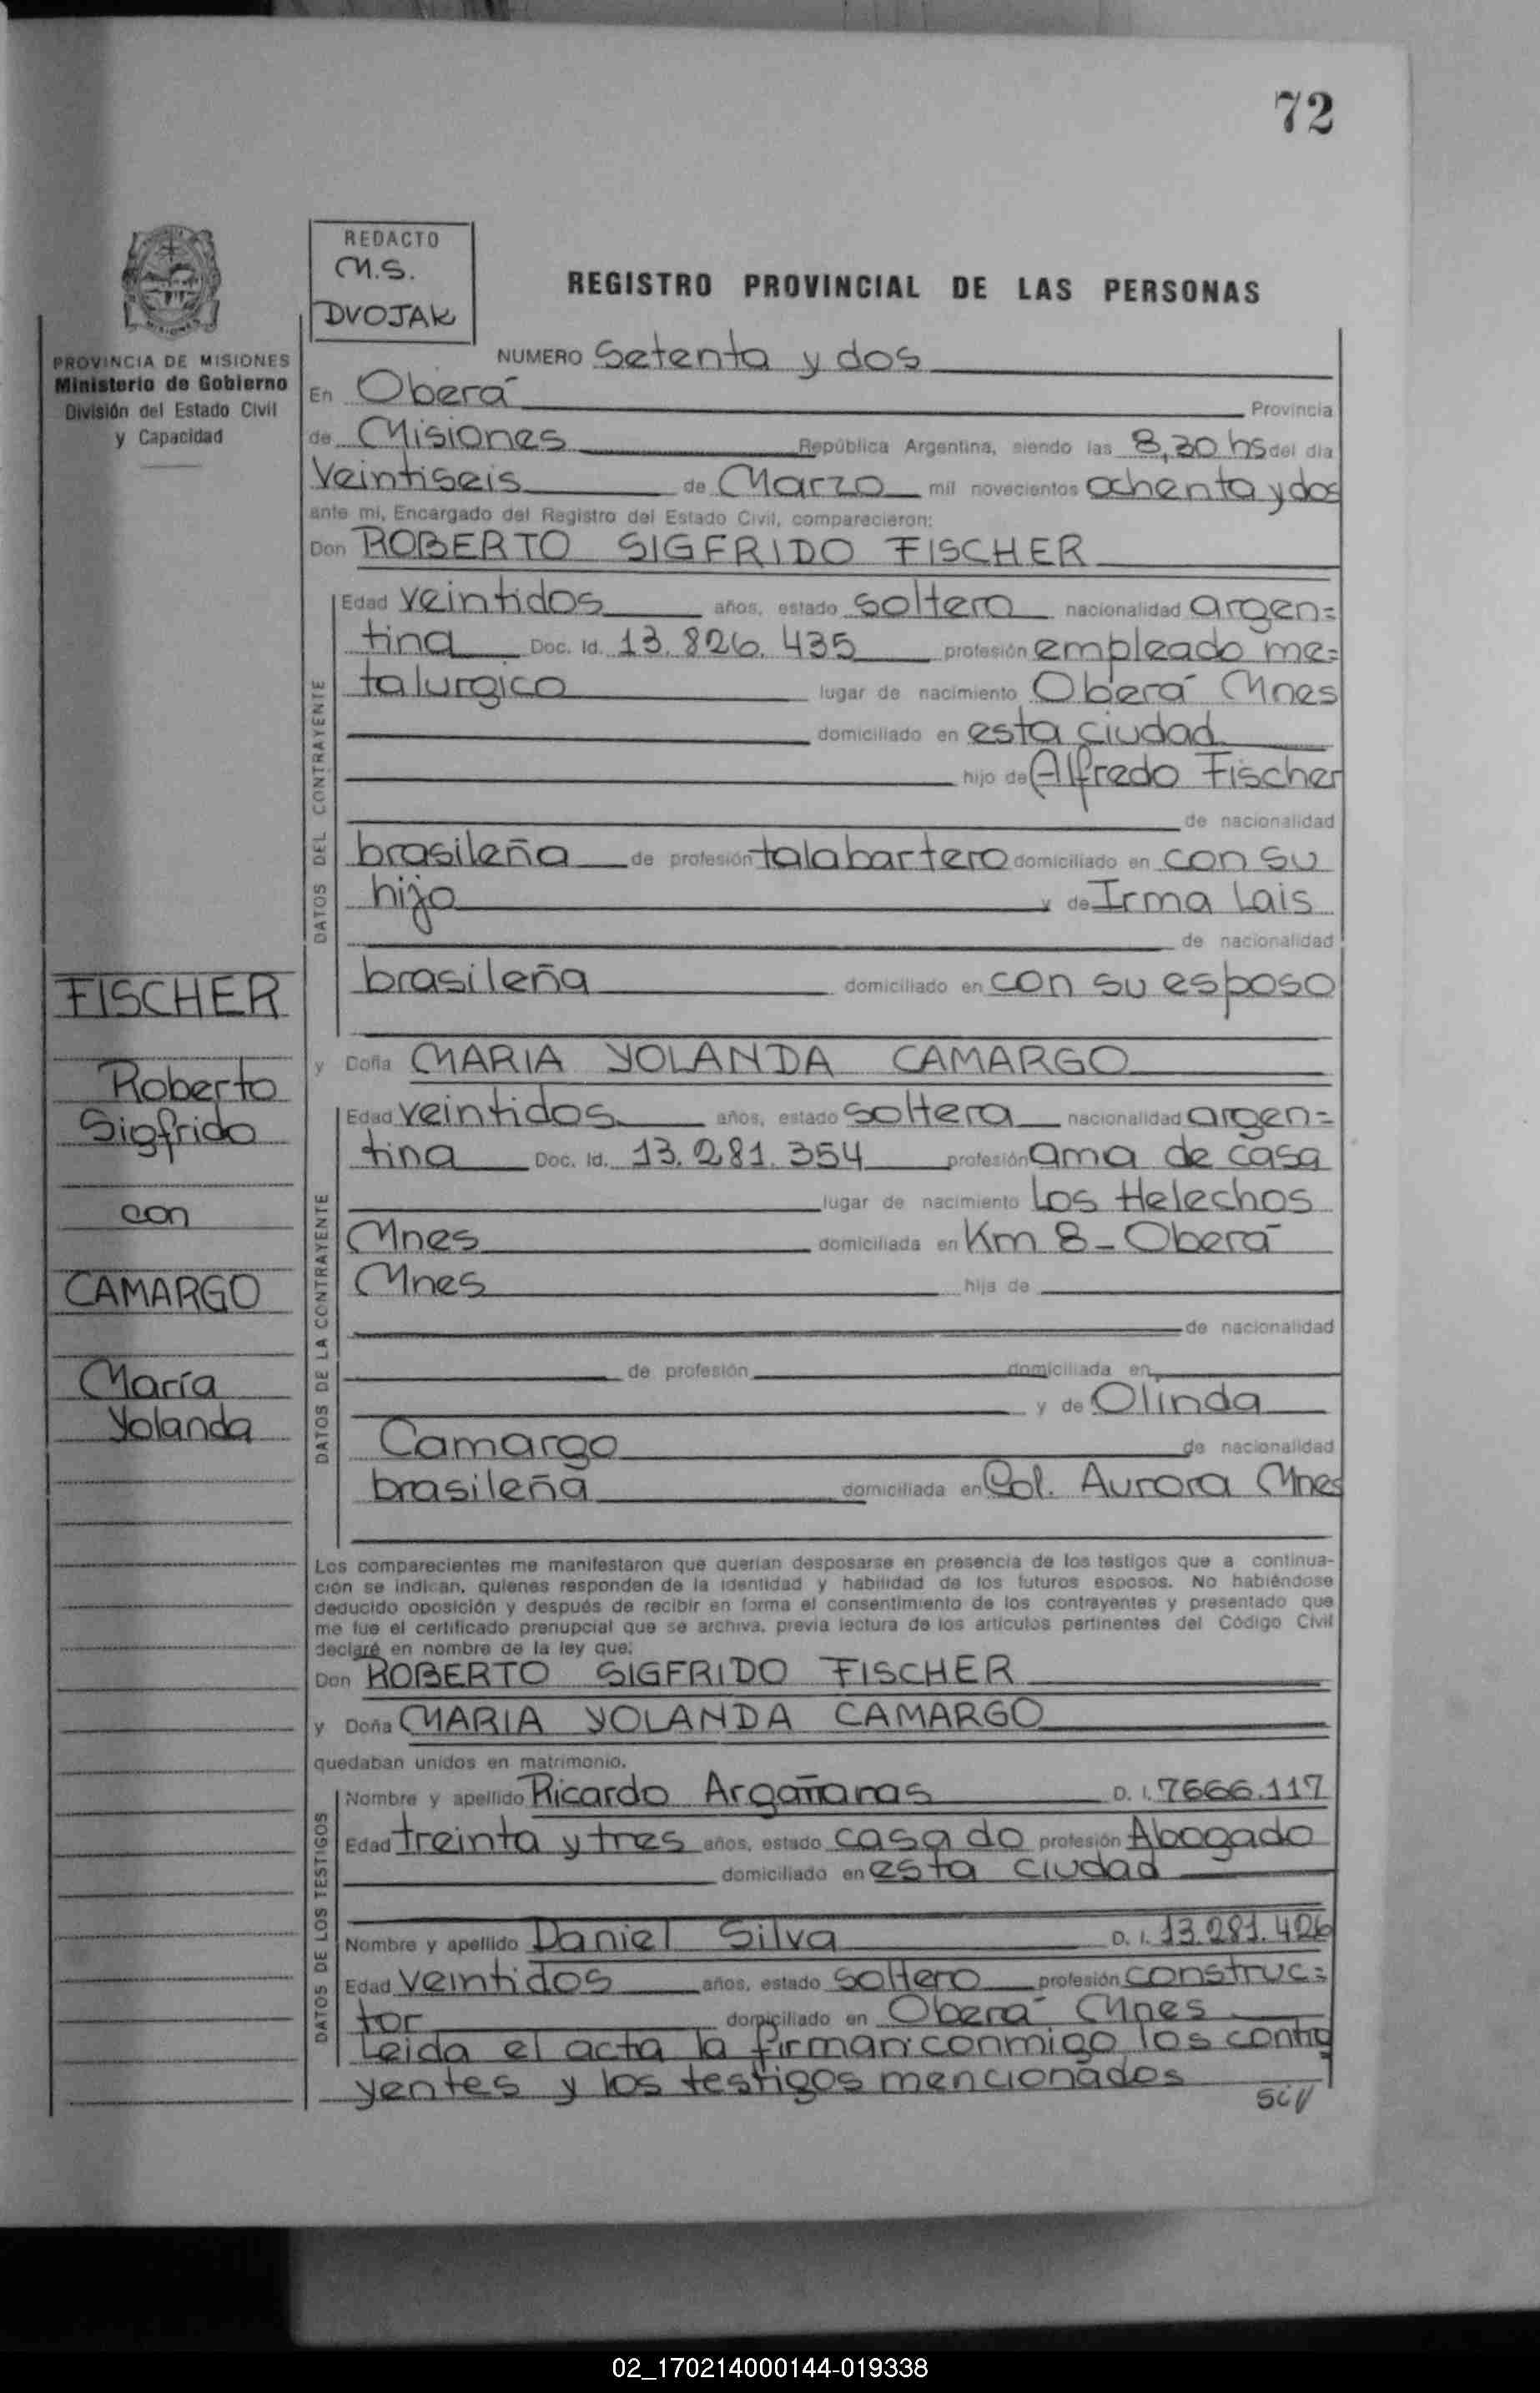 72
REDACTO
M.S.
DVOJAK
REGISTRO PROVINCIAL DE LAS PERSONAS
PROVINCIA DE MISIONES
Ministerio de Gobierno
División del Estado Civil
y Capacidad
NUMERO Setenta y dos
En Oberá Provincia
de Misiones República Argentina, siendo las 8,30 hs del dia
Veintiseis de Marzo mil novecientos ochenta y dos
ante mi, Encargado del Registro del Estado Civil, comparecieron:
Don ROBERTO SIGFRIDO FISCHER
DATOS DEL CONTRAYENTE
Edad veintidos años, estado soltero nacionalidad argen=
tina Doc. Id. 13.826.435 profesión empleado me=
talurgico lugar de nacimiento Oberá Mnes
domiciliado en esta ciudad
hijo de Alfredo Fischer
de nacionalidad
brasileña de profesión talabartero domiciliado en con su
hijo y de Irma Lais
de nacionalidad
brasileña domiciliado en con su esposo
FISCHER
Roberto
Sigfrido
con
CAMARGO
María
Yolanda
y Doña MARIA YOLANDA CAMARGO
DATOS DE LA CONTRAYENTE
Edad veintidos años, estado soltera nacionalidad argen=
tina Doc. Id. 13.281.354 profesión ama de casa
lugar de nacimiento Los Helechos
Mnes domiciliada en Km 8 - Oberá
Mnes hija de
de nacionalidad
de profesión domiciliada en
y de Olinda
Camargo de nacionalidad
brasileña domiciliada en Col. Aurora Mnes
Los comparecientes me manifestaron que querían desposarse en presencia de los testigos que a continua-
ción se indican, quienes responden de la identidad y habilidad de los futuros esposos. No habiéndose
deducido oposición y después de recibir en forma el consentimiento de los contrayentes y presentado que
me fue el certificado prenupcial que se archiva, previa lectura de los artículos pertinentes del Código Civil
declaré en nombre de la ley que:
Don ROBERTO SIGFRIDO FISCHER
y Doña MARIA YOLANDA CAMARGO
quedaban unidos en matrimonio.
DATOS DE LOS TESTIGOS
Nombre y apellido Ricardo Argañaras D. I. 7666.117
Edad treinta y tres años, estado casado profesión Abogado
domiciliado en esta ciudad
Nombre y apellido Daniel Silva D. I. 13.281.426
Edad veintidos años, estado soltero profesión construc=
tor domiciliado en Oberá Mnes
Leida el acta la firman conmigo los contra
yentes y los testigos mencionados
02_170214000144-019338